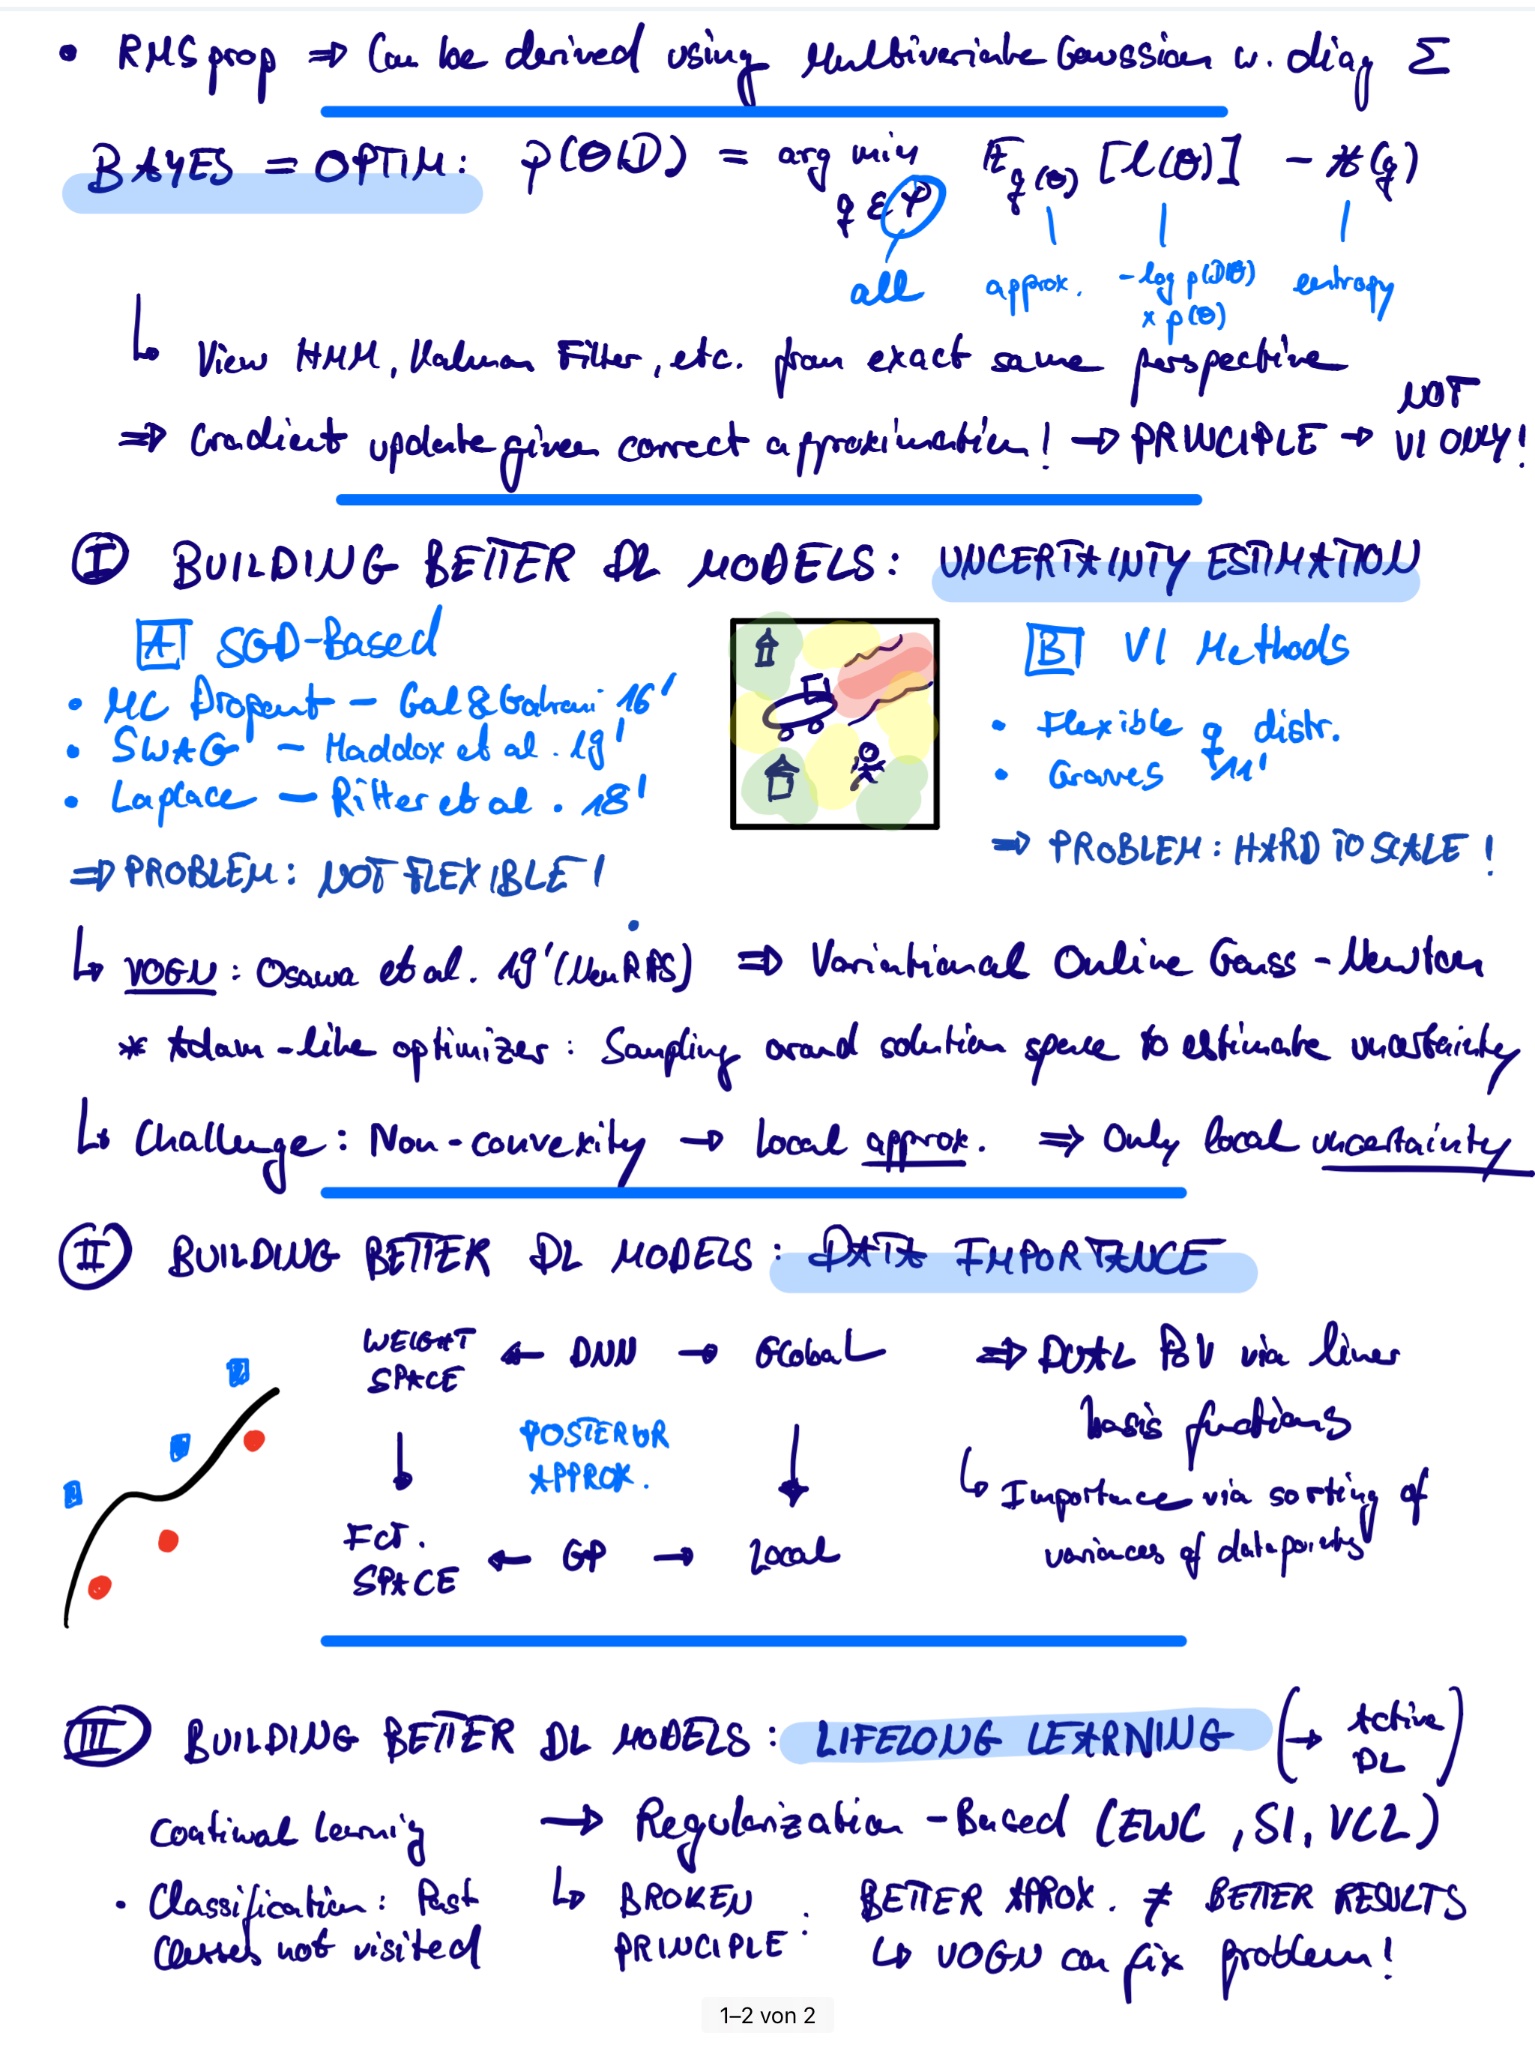 • RMSprop ⇒ Can be derived using Multivariate Gaussian w. diag Σ
BAYES = OPTIM: p(θ|D) = arg min E_q(θ) [l(θ)] - H(q)
q ε P
all approx. -log p(D|θ) entropy
x p(θ)
↳ View HMM, Kalman Filter, etc. from exact same perspective
NOT
⇒ Gradient update given correct approximation! → PRINCIPLE → VI ONLY!
I BUILDING BETTER DL MODELS: UNCERTAINTY ESTIMATION
A SGD-Based
• MC Dropout - Gal & Gahrani 16'
• SWAG - Maddox et al. 19'
• Laplace - Ritter et al. 18'
⇒ PROBLEM: NOT FLEXIBLE!
B VI Methods
• Flexible q distr.
• Graves '11'
⇒ PROBLEM: HARD TO SCALE!
↳ VOGN: Osawa et al. 19' (NeurIPS) ⇒ Variational Online Gauss-Newton
* Adam-like optimizer: Sampling around solution space to estimate uncertainty
↳ Challenge: Non-convexity → Local approx. ⇒ Only local uncertainty
II BUILDING BETTER DL MODELS: DATA IMPORTANCE
WEIGHT SPACE ← DNN → Global
↓ POSTERIOR APPROX. ↓
FCT. SPACE ← GP → Local
⇒ DUAL POV via linear
basis functions
↳ Importance via sorting of
variances of datapoints
III BUILDING BETTER DL MODELS: LIFELONG LEARNING (→ Active DL)
Continual Learning → Regularization-Based (EWC, SI, VCL)
• Classification: Past
Classes not visited
↳ BROKEN
PRINCIPLE:
BETTER APPROX. ≠ BETTER RESULTS
↳ VOGN can fix problem!
1–2 von 2